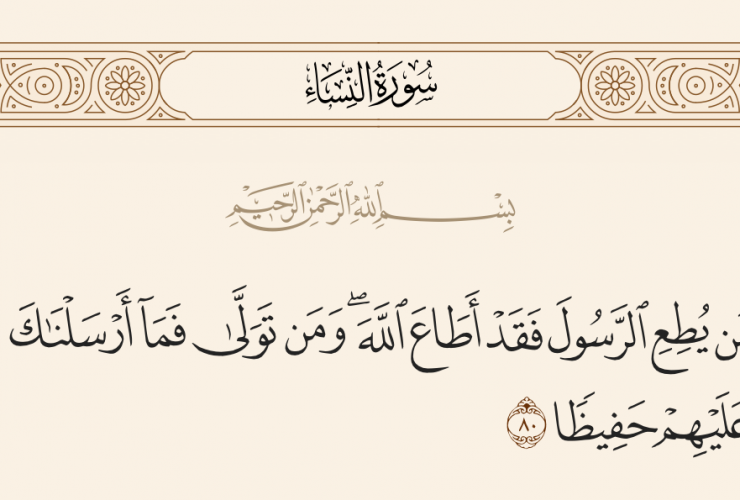 سُورَةُ النِّسَاءِ
بِسْمِ ٱللَّهِ ٱلرَّحْمَٰنِ ٱلرَّحِيمِ
يُطِعِ ٱلرَّسُولَ فَقَدْ أَطَاعَ ٱللَّهَ ۖ وَمَن تَوَلَّىٰ فَمَآ أَرْسَلْنَٰكَ
عَلَيْهِمْ حَفِيظًا ٨٠